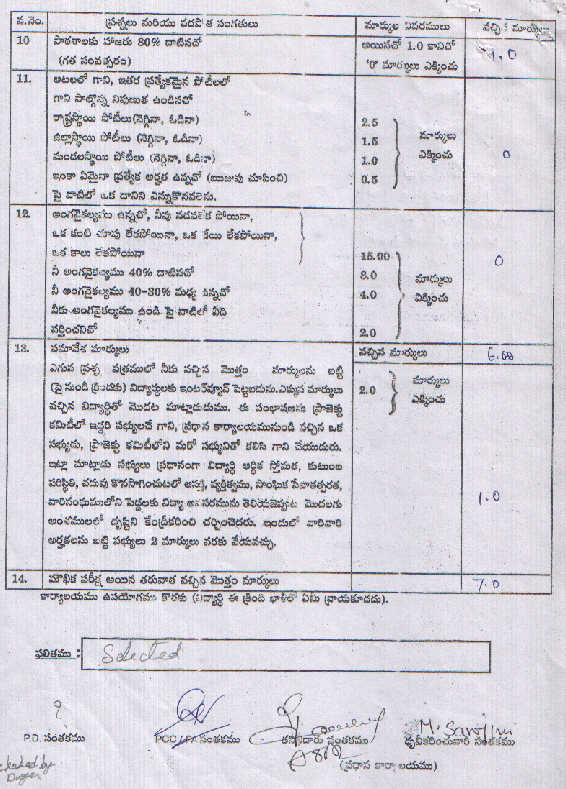 వ.నం. ప్రశ్నలు మరియు పరిపాలక సంగతులు మార్కుల వివరములు వచ్చిన మార్కులు
10 పాఠశాలకు హాజరు 80% దాటినచో అయినచో 1.0 కానిచో 1.0
(గత సంవత్సరం) '0' మార్కులు ఎక్కించు
11. ఆటలలో గాని, ఇతర ప్రత్యేకమైన పోటీలలో
గాని పాల్గొన్న నిపుణుత ఉండినచో
రాష్ట్రస్థాయి పోటీలు (నెగ్గినా, ఓడినా) 2.5 మార్కులు
జిల్లాస్థాయి పోటీలు (నెగ్గినా, ఓడినా) 1.5 ఎక్కించు
మండలస్థాయి పోటీలు (నెగ్గినా, ఓడినా) 1.0 0
ఇంకా ఏమైనా ప్రత్యేక అర్హత ఉన్నచో (ఋజువు చూపించి) 0.5
పై వాటిలో ఒక దానిని ఎన్నుకొనవలెను.
12. అంగవైకల్యము ఉన్నచో, నీవు నడవలేక పోయినా,
ఒక కంటి చూపు లేకపోయినా, ఒక చేయి లేకపోయినా,
ఒక కాలు లేకపోయినా 15.00 0
నీ అంగవైకల్యము 40% దాటినచో 8.0 మార్కులు
నీ అంగవైకల్యము 40-30% మధ్య ఉన్నచో 4.0 ఎక్కించు
నీకు అంగవైకల్యము ఉండి పై వాటిలో ఏది
వర్తించనిచో 2.0
13. సమావేశ మార్కులు వచ్చిన మార్కులు
ఎగువ ప్రశ్న పత్రములో నీకు వచ్చిన మొత్తం మార్కులను బట్టి 2.0 మార్కులు
(పై నుండి క్రిందకు) విద్యార్థులకు ఇంటర్వ్యూన్ పెట్టబడును. ఎక్కువ మార్కులు ఎక్కించు
వచ్చిన విద్యార్థితో మొదట మాట్లాడుదుము. ఈ సంభాషణను ప్రాజెక్టు
కమిటీలో ఇద్దరి సభ్యులచే గాని, ప్రధాన కార్యాలయమునుండి వచ్చిన ఒక
సభ్యుడు, ప్రాజెక్టు కమిటీలోని మరో సభ్యునితో కలిసి గాని చేయుదురు.
ఇట్లా మాట్లాడు సభ్యులు ప్రధానంగా విద్యార్థి ఆర్థిక స్తోమత, కుటుంబ
పరిస్థితి, చదువు కొనసాగించుటలో ఆసక్తి, వ్యక్తిత్వము, సాంఘిక సేవాతత్పరత,
వారిసంఘములోని పెద్దలకు విద్యా అవసరమును తెలియజెప్పుట మొదలగు 1.0
అంశములలో దృష్టిని కేంద్రీకరించి చర్చించెదరు. ఇందులో వారివారి
అర్హతలను బట్టి సభ్యులు 2 మార్కులు వరకు వేయవచ్చు.
14. మౌఖిక పరీక్ష అయిన తరువాత వచ్చిన మొత్తం మార్కులు 7.0
కార్యాలయము ఉపయోగము కొరకు (విద్యార్థి ఈ క్రింది ఖాళీలో ఏమి వ్రాయకూడదు).
ఫలితము : Selected
P.O. సంతకము PCC / PA సంతకము సంతకము M. Sarojini ధృవీకరించువారి సంతకము
(ప్రధాన కార్యాలయము)